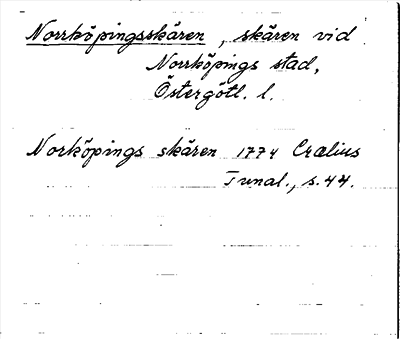 Norrköpingsskären, skären vid
Norrköpings stad,
Östergötl. l.
Norköpings skären 1774 Crælius
Tunal., s. 44.